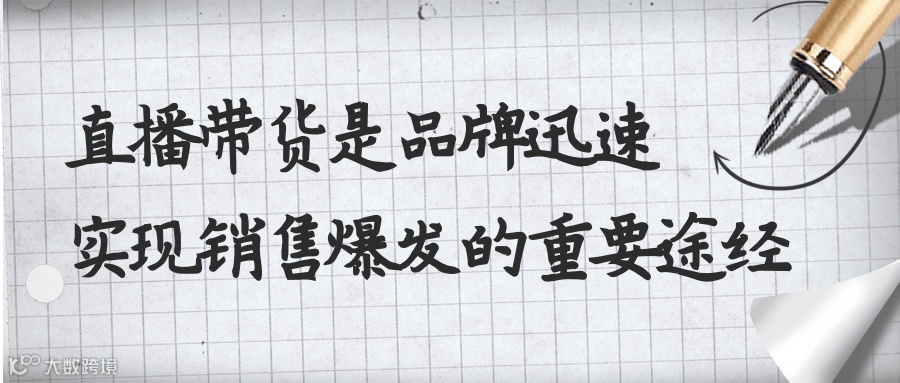 直播带货是品牌迅速
实现销售爆发的重要途经
大数跨境